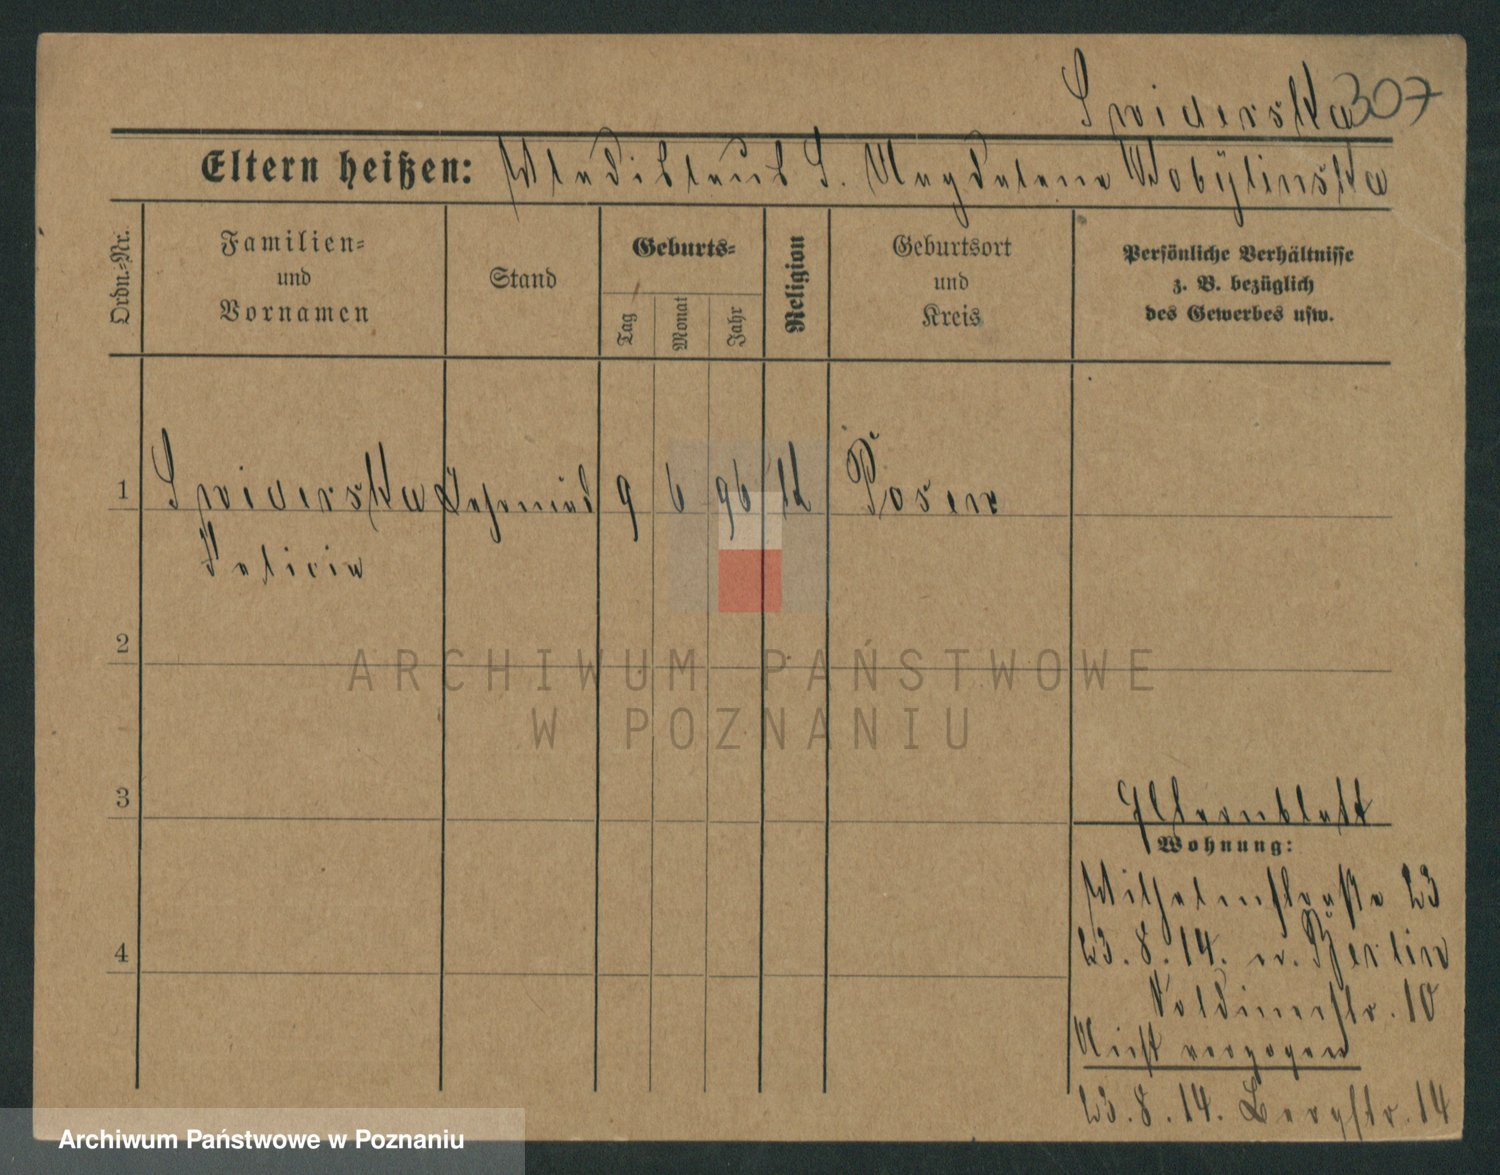 Swiderska 307
Eltern heißen: Wladislaus S. Magdalena Wobylinska
Ordn.-Nr.
Familien-
und
Vornamen
Stand
Geburts-
Tag
Monat
Jahr
Religion
Geburtsort
und
Kreis
Persönliche Verhältnisse
z. B. bezüglich
des Gewerbes usw.
1 Swiderska 9 6 96 k Posen
Felicia
2
ARCHIWUM PAŃSTWOWE
W POZNANIU
3
Elternblatt
Wohnung:
Wilhelmstraße 23
4
23.8.14. n. Berlin
Soldinerstr. 10
Nicht verzogen
23.8.14. Bergstr. 14
Archiwum Państwowe w Poznaniu